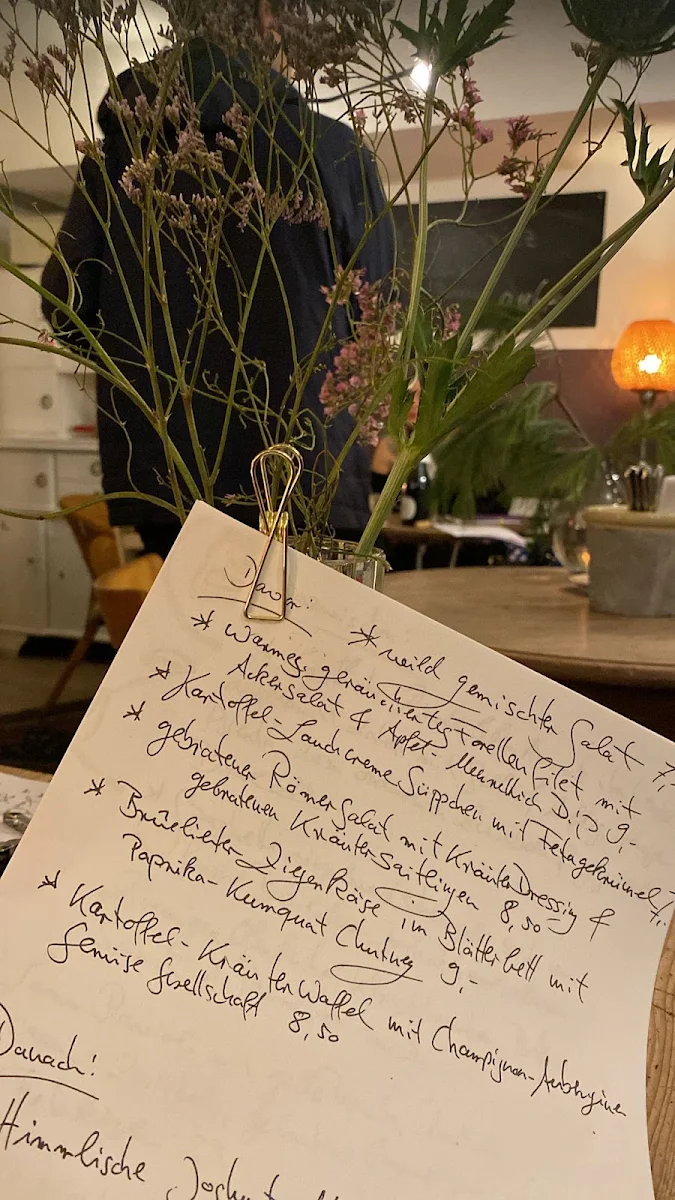 Davor:
* wild gemischter Salat 7,-
* warmes, geräuchertes Forellenfilet mit
Ackersalat & Apfel-Meerrettich Dip 9,-
* Kartoffel-Lauchcreme Süppchen mit Fetagekrümel 7,-
* gebratener Römersalat mit KräuterDressing &
gebratenen Kräutersaitlingen 8,50
* Brüelierter Ziegenkäse im Blätterbett mit
Paprika-Kumquat Chutney 9,-
* Kartoffel-Kräuterwaffel mit Champignon-Auberginen
Gemüse Gesellschaft 8,50
Danach!
Himmlische